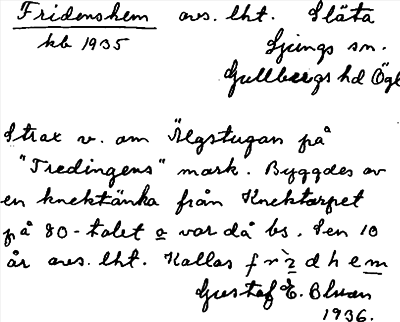 Fridenshem avs. lht. Släta
kb 1935 Ljungs sn.
Gullbergs hd Ögl
Strax v. om Älgstugan på
"Tredingens" mark. Byggdes av
en knektänka från Knektorpet
på 80-talet o var då bs. Sen 10
år avs. lht. Kallas frìdhem
Gustaf E. Blman
1936.